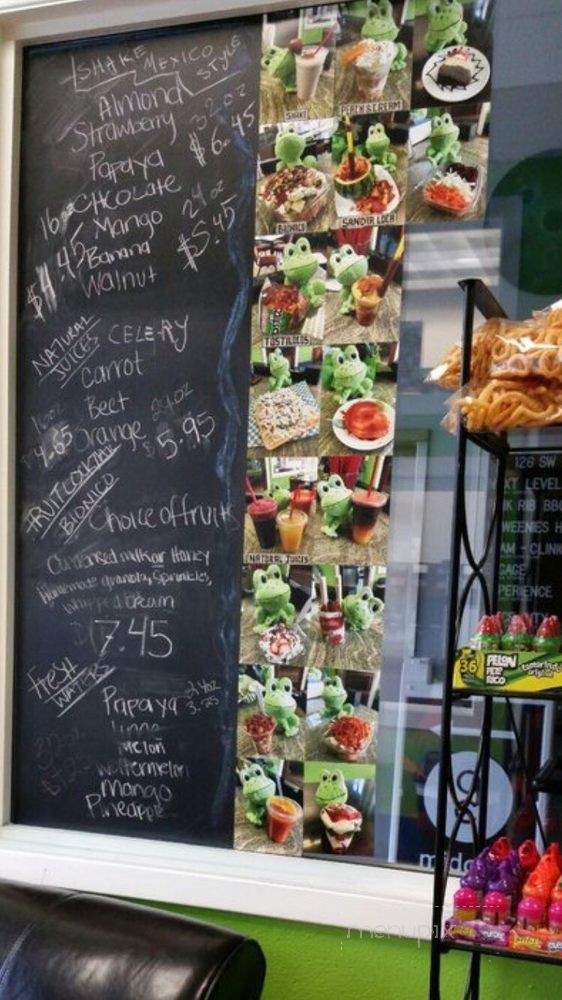 SHAKE MEXICO STYLE
Almond
Strawberry 32 oz
$6.45
Papaya
16 oz CHCOLATE
24 oz
$4.45 Mango
$5.45
Banana
Walnut
NATURAL JUICES
CELERY
Carrot
Beet
24oz
4.65 Orange $5.95
FRUIT COCKTAIL
BIONICO
Choice of fruits
Condensed milk or Honey
Homemade granola, Sprinkles,
Whipped Cream
7.45
FRESH WATERS
Papaya 24oz
3.25
Lime
Melon
Watermelon
Mango
Pineapple
SHAKE
PEACH & CREAM
BIONICO
SANDIA LOCA
TOSTILOCOS
NATURAL JUICES
126 SW
NEXT LEVEL
RIB BBQ
WEENIES
36
PELON
PELO
RICO
tamarindo
original
menupix